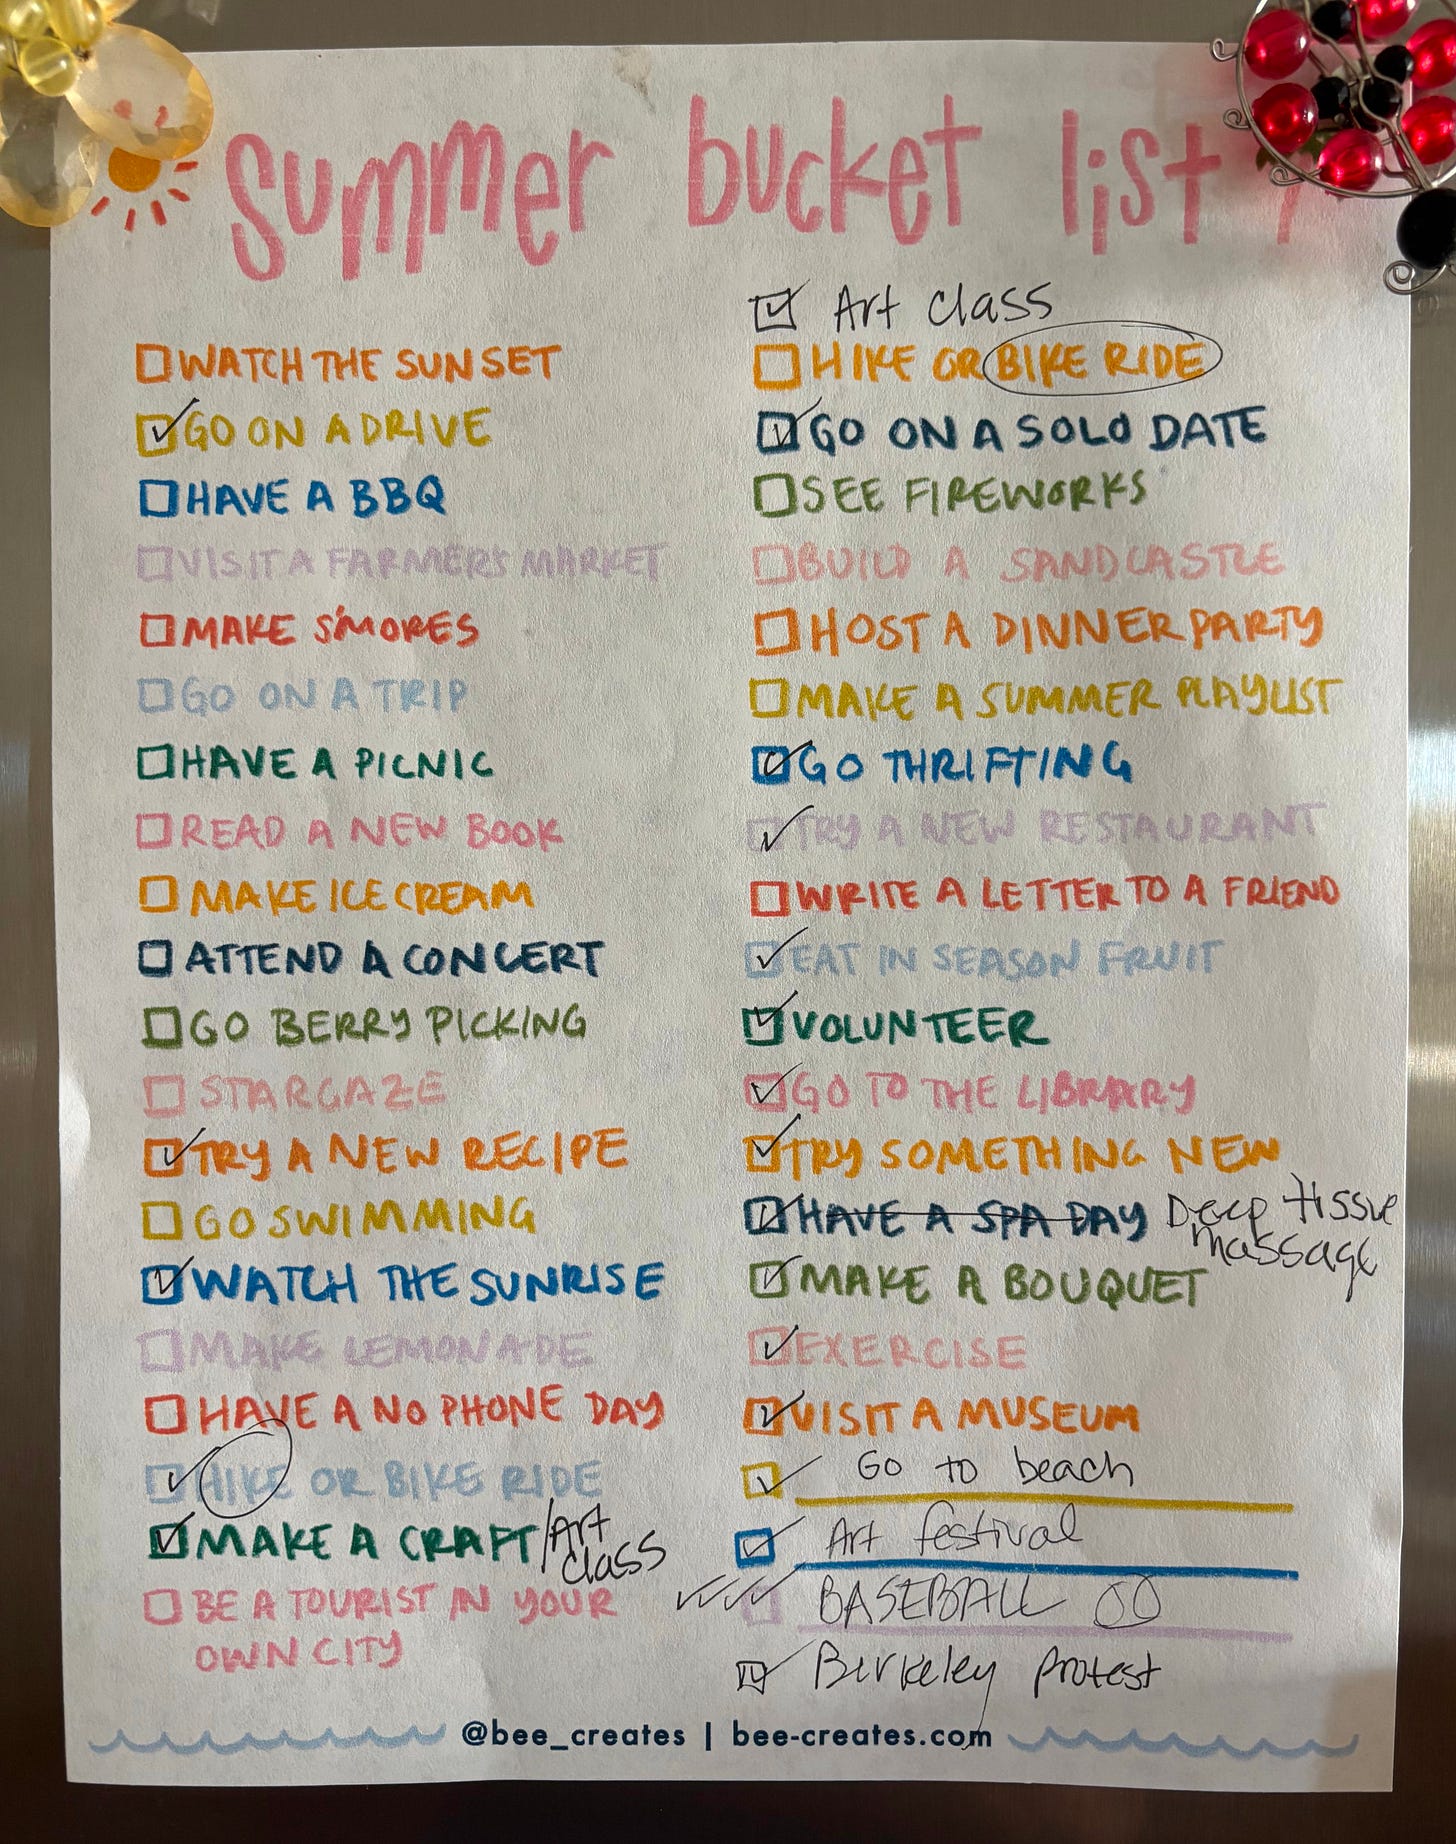 summer bucket list
WATCH THE SUNSET
GO ON A DRIVE
HAVE A BBQ
VISIT A FARMERS MARKET
MAKE S'MORES
GO ON A TRIP
HAVE A PICNIC
READ A NEW BOOK
MAKE ICE CREAM
ATTEND A CONCERT
GO BERRY PICKING
STARGAZE
TRY A NEW RECIPE
GO SWIMMING
WATCH THE SUNRISE
MAKE LEMONADE
HAVE A NO PHONE DAY
HIKE OR BIKE RIDE
MAKE A CRAFT/Art
class
BE A TOURIST IN YOUR
OWN CITY
Art class
HIKE OR BIKE RIDE
GO ON A SOLO DATE
SEE FIREWORKS
BUILD A SANDCASTLE
HOST A DINNER PARTY
MAKE A SUMMER PLAYLIST
GO THRIFTING
TRY A NEW RESTAURANT
WRITE A LETTER TO A FRIEND
EAT IN SEASON FRUIT
VOLUNTEER
GO TO THE LIBRARY
TRY SOMETHING NEW
HAVE A SPA DAY Deep tissue
massage
MAKE A BOUQUET
EXERCISE
VISIT A MUSEUM
Go to beach
Art festival
BASEBALL
Berkeley protest
@bee_creates | bee-creates.com